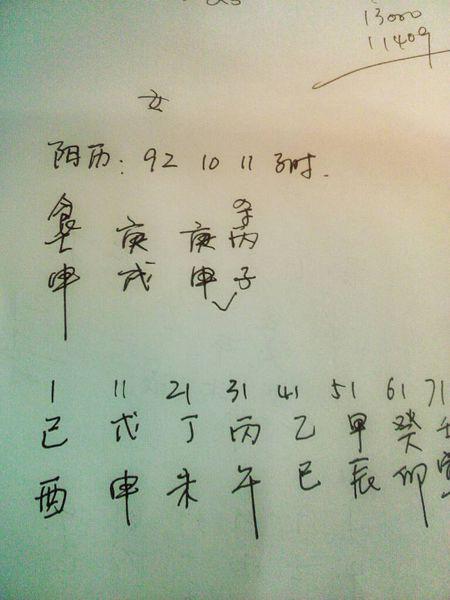 13000
11409
女
阳历: 92 10 11 子时.
食 杀
壬 庚 庚 丙
申 戌 申 子
1 11 21 31 41 51 61 71
己 戊 丁 丙 乙 甲 癸 壬
酉 申 未 午 巳 辰 卯 寅